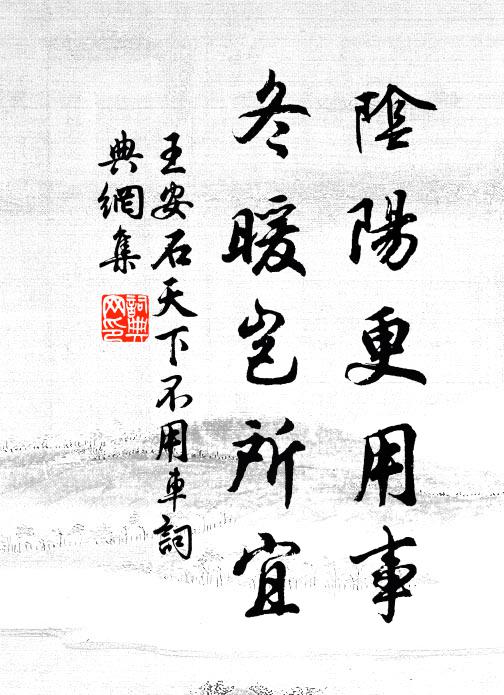 陰陽更用事
冬暖岂所宜
王安石天下不用車詞
典網集
詞典
网印